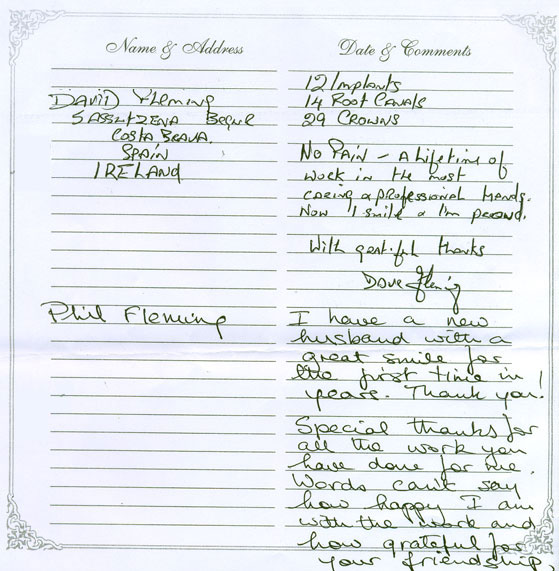 Name & Address
David Fleming
Costa Brava.
Spain
IRELAND
Phil Fleming
Date & Comments
12 Implants
14 Root Canals
29 Crowns
No Pain – A lifetime of
work in the most
caring & professional hands.
Now I smile & I'm proud.
With gratiful thanks
Dave Fleming
I have a new
husband with a
great smile for
the first time in
years. Thank you!
Special thanks for
all the work you
have done for me.
Words can't say
how happy I am
with the work and
how grateful for
your friendship.